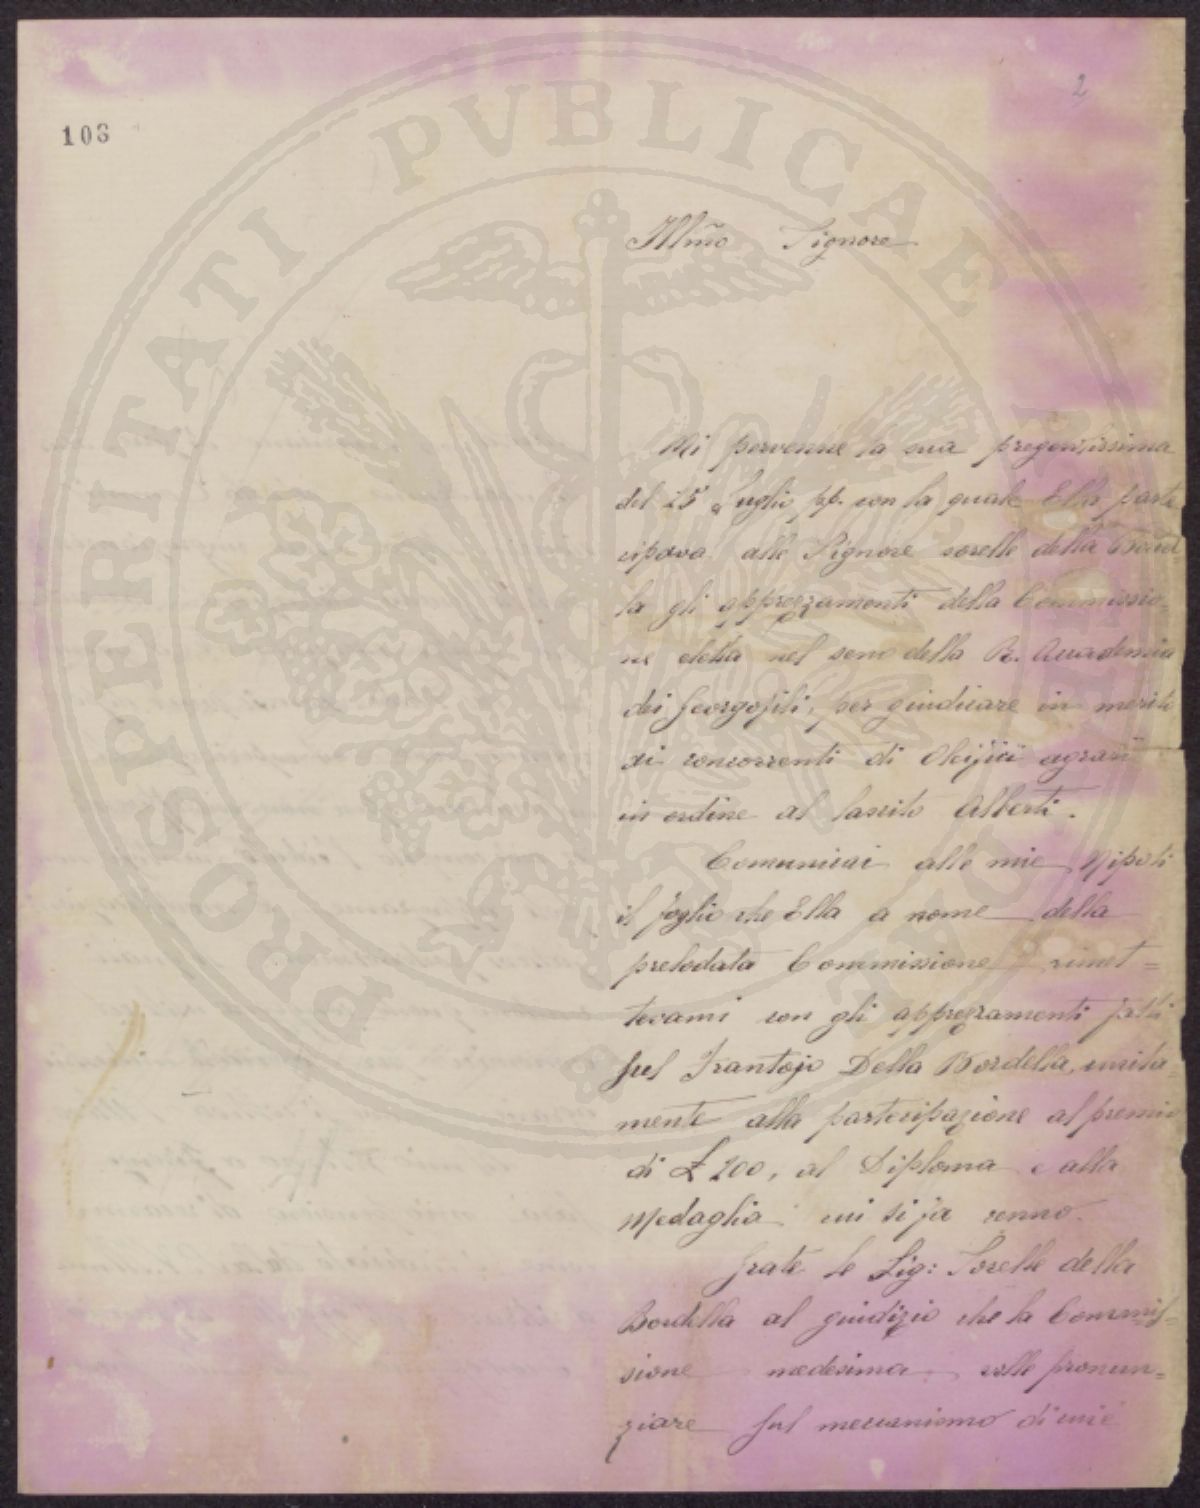 103
2
PROSPERITATI PVBLICAE AVGENDAE
Illmo Signore
Mi pervenne la sua pregentissima
del 25 Luglio pp. con la quale Ella parte
cipava alle Signore sorelle della Bord
la gli apprezzamenti della Commissio-
ne eletta nel seno della R. Accademia
dei Georgofili, per giudicare in merito
ai concorrenti di Oleificii agrari
in ordine al lascito Alberti.
Comunicai alle mie Nipoti
il foglio che Ella a nome della
prelodata Commissione rimet=
tevami con gli apprezzamenti fatti
sul Frantojo Della Bordella, unita=
mente alla partecipazione al premio
di £ 200, al Diploma e alla
Medaglia cui si fa cenno.
Grate le Sig: Sorelle della
Bordella al giudizio che la Commis=
sione medesima volle pronun=
ziare sul meccanismo di cui è